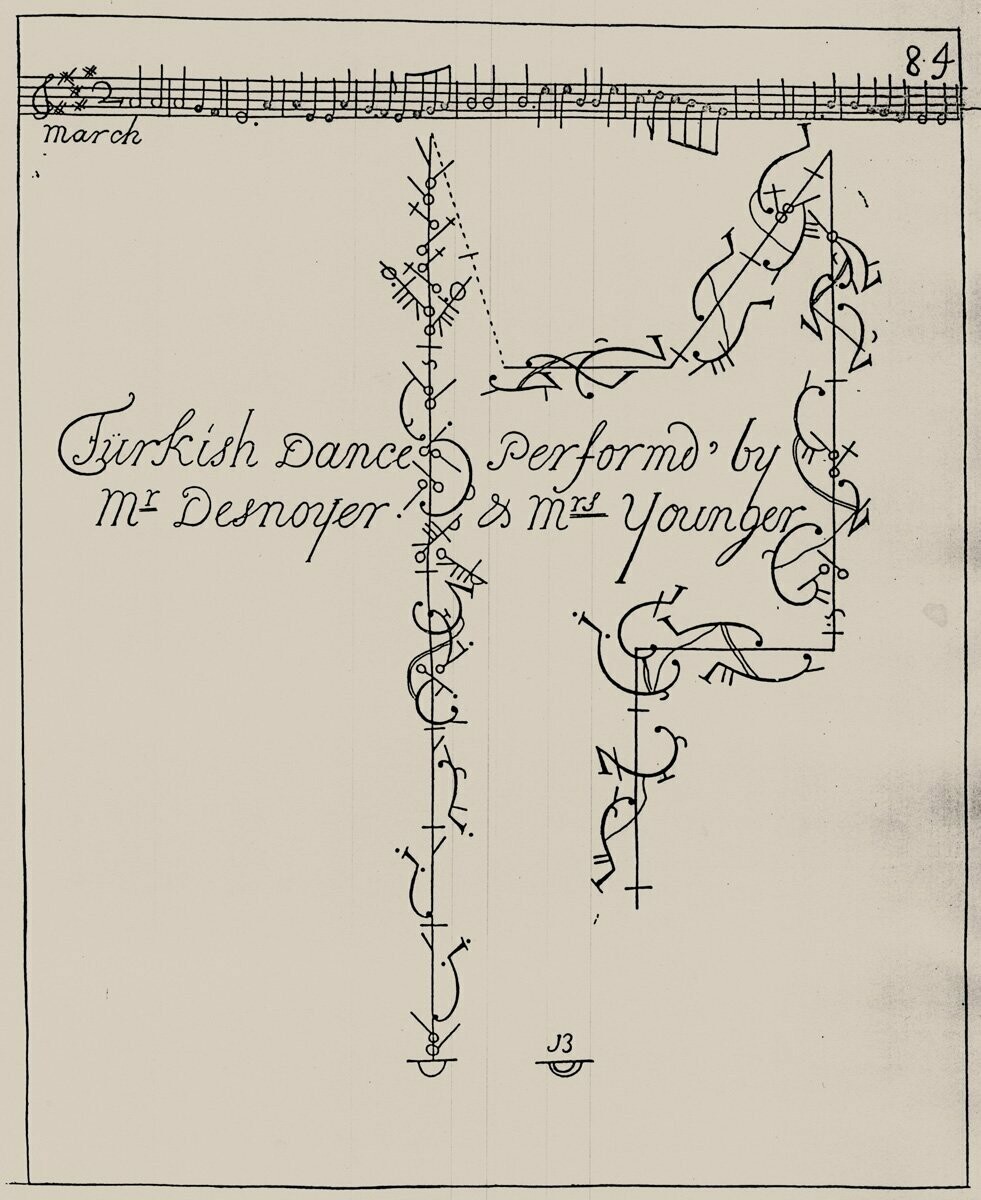 84
March
Türkish Dance Performd' by
Mr Desnoyer. & Mrs Younger
13